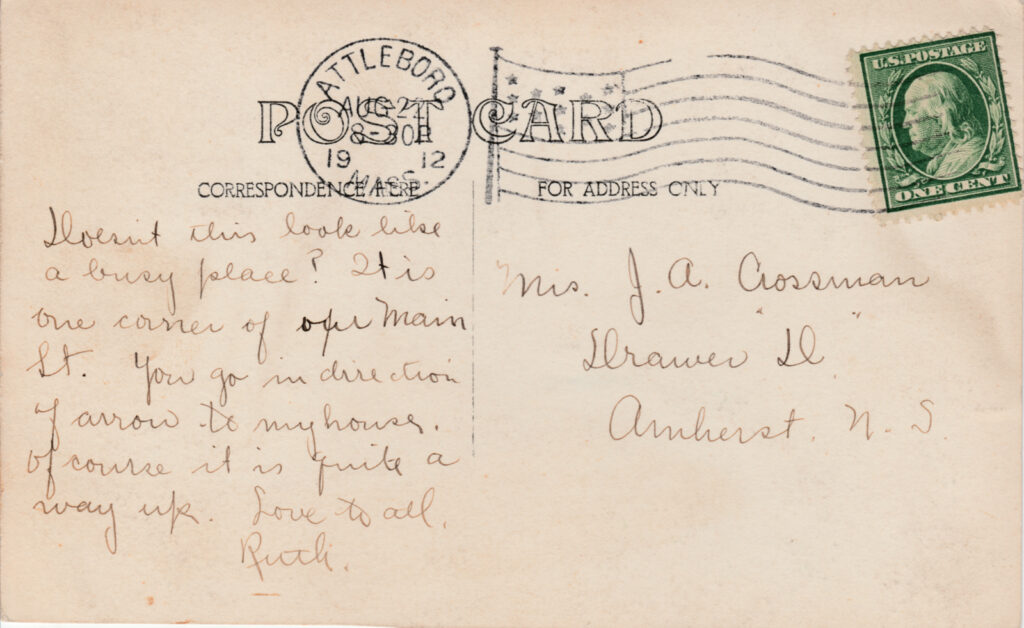 ATTLEBORO
AUG 2
8-30P
19 12
MASS.
U.S. POSTAGE
ONE CENT
POST CARD
CORRESPONDENCE HERE
FOR ADDRESS ONLY
Doesnt this look like
a busy place? It is
one corner of our Main
St. You go in direction
of arrow to my house.
Of course it is quite a
way up. Love to all.
Ruth.
Mrs. J. A. Crossman
Drawer "D"
Amherst. N. S.